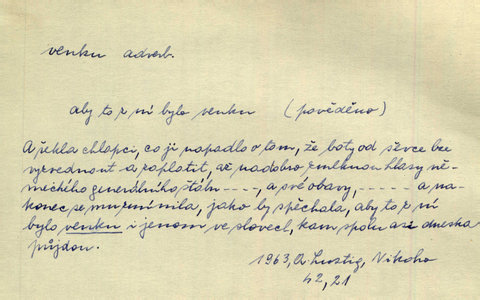 venku adverb.
aby to z ní bylo venku (pověděno)
A řekla chlapci, co ji napadlo o tom, že boty od ševce lze
vyzvednout a zaplatit, až nadobro zmlknou hlasy ně-
meckého generálního štábu ----, a své obavy, ----- a na-
konec se mu zmínila, jako by spěchala, aby to z ní
bylo venku i jenom ve slovech, kam spolu asi dneska
půjdou.
1963, A. Lustig, Nikoho
42, 21